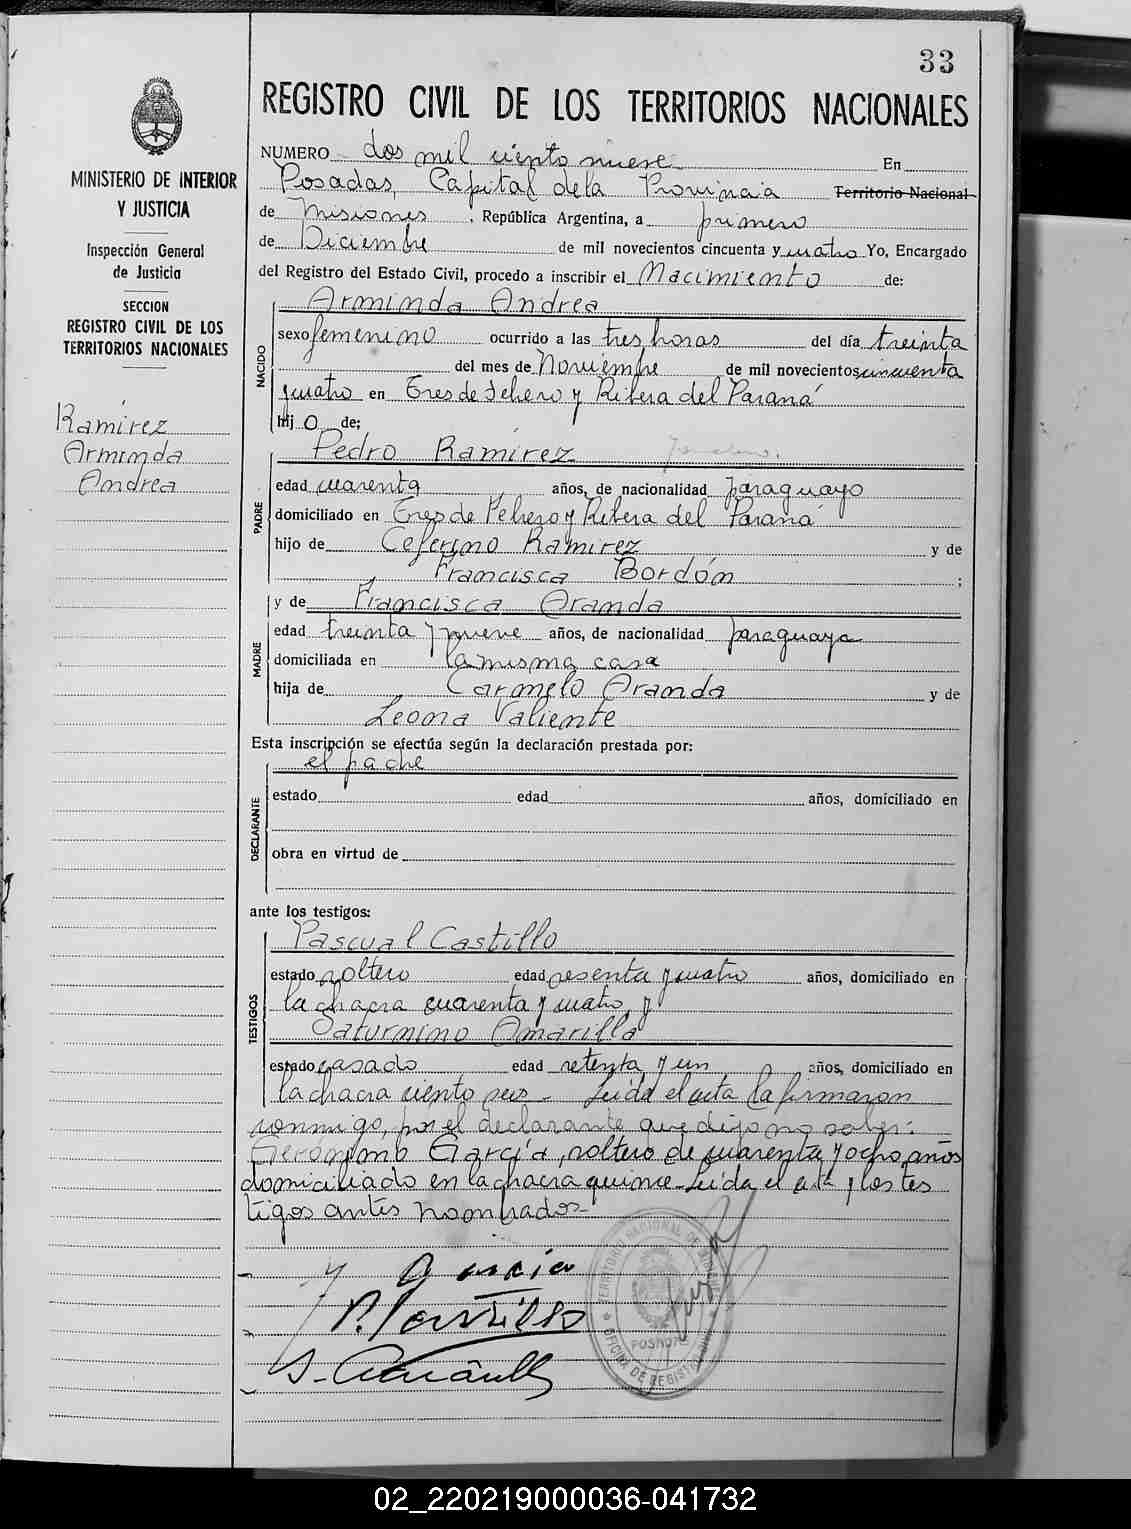 33
REGISTRO CIVIL DE LOS TERRITORIOS NACIONALES
MINISTERIO DE INTERIOR
Y JUSTICIA
Inspección General
de Justicia
SECCION
REGISTRO CIVIL DE LOS
TERRITORIOS NACIONALES
Ramírez
Arminda
Andrea
NUMERO dos mil ciento nueve En
Posadas, Capital de la Provincia Territorio Nacional
de Misiones, República Argentina, a primero
de Diciembre de mil novecientos cincuenta y cuatro Yo, Encargado
del Registro del Estado Civil, procedo a inscribir el Nacimiento de:
NACIDO
Arminda Andrea
sexo femenino ocurrido a las tres horas del día treinta
del mes de Noviembre de mil novecientos cincuenta
y cuatro en Tres de Febrero y Ribera del Paraná
hij o de;
PADRE
Pedro Ramírez
edad cuarenta años, de nacionalidad paraguayo
domiciliado en Tres de Febrero y Ribera del Paraná
hijo de Ceferino Ramírez y de
Francisca Bordón ;
MADRE
y de Francisca Aranda
edad treinta y nueve años, de nacionalidad paraguaya
domiciliada en la misma casa
hija de Carmelo Aranda y de
Leona Valiente
Esta inscripción se efectúa según la declaración prestada por:
DECLARANTE
el padre
estado edad años, domiciliado en
obra en virtud de
ante los testigos:
TESTIGOS
Pascual Castillo
estado soltero edad sesenta y cuatro años, domiciliado en
la chacra cuarenta y cuatro y
Saturnino Amarilla
estado casado edad setenta y un años, domiciliado en
la chacra ciento seis - Leída el acta la firmaron
conmigo, por el declarante que dijo no saber:
Gerónimo García, soltero de cuarenta y ocho años
domiciliado en la chacra quince - Leída el acta y los tes
tigos antes nombrados -
García
P. Castillo
S. Amarilla
TERRITORIO NACIONAL DE MISIONES
POSADAS
OFICINA DE REGISTRO CIVIL
02_220219000036-041732